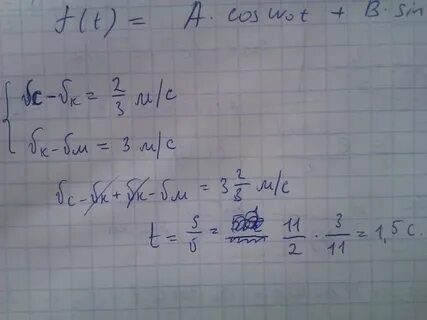 f(t) = A · cos ω₀t + B · sin
υc - υк = 2/3 м/с
υк - υм = 3 м/с
υc - υк + υк - υм = 3 2/3 м/с
t = S/υ = 11/2 · 3/11 = 1,5 c.